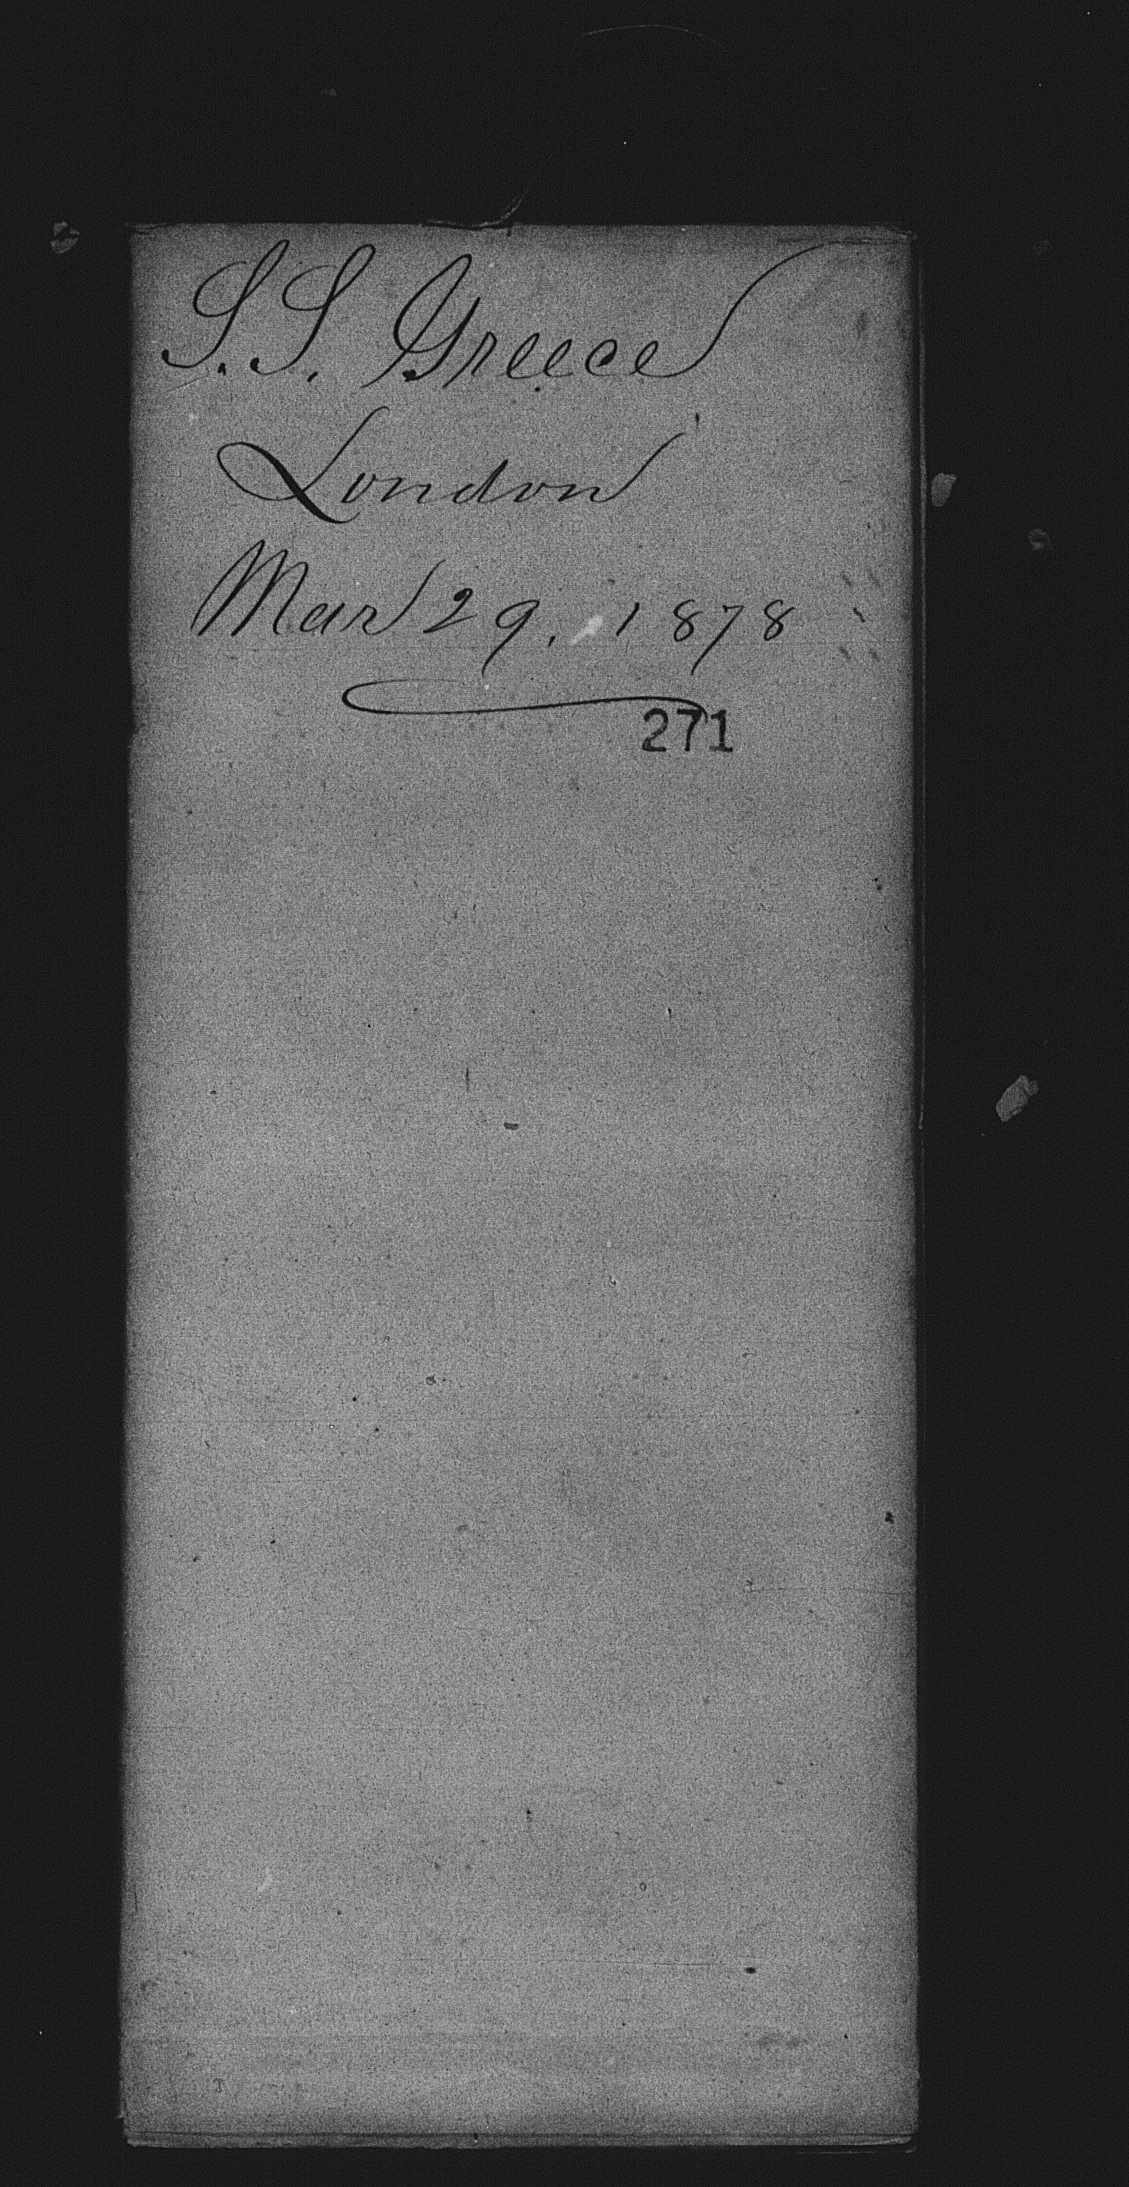 S.S. Greece
London
Mar 29, 1878
271